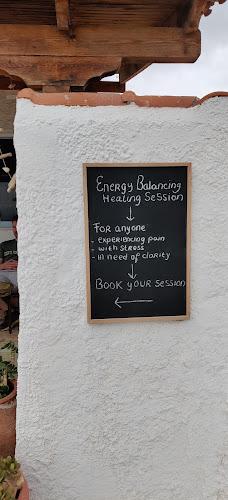 Energy Balancing
Healing Session
↓
For anyone
- experiencing pain
- with stress
- in need of clarity
↓
Book your session
←